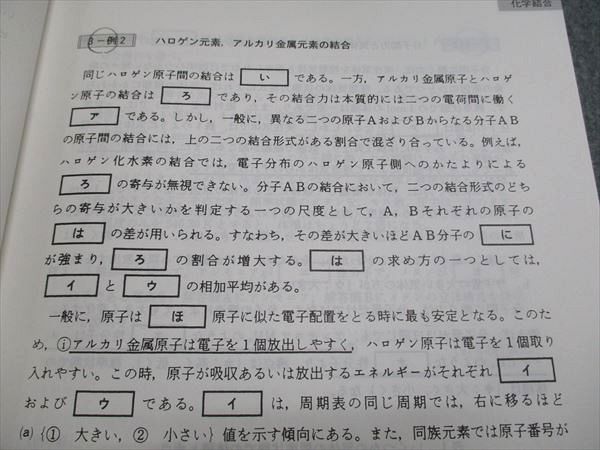 化学結合
β－例2 ハロゲン元素，アルカリ金属元素の結合
同じハロゲン原子間の結合は い である。一方，アルカリ金属原子とハロゲ
ン原子の結合は ろ であり，その結合力は本質的には二つの電荷間に働く
ア である。しかし，一般に，異なる二つの原子AおよびBからなる分子AB
の原子間の結合には，上の二つの結合形式がある割合で混ざり合っている。例えば，
ハロゲン化水素の結合では，電子分布のハロゲン原子側へのかたよりによる
ろ の寄与が無視できない。分子ABの結合において，二つの結合形式のどち
らの寄与が大きいかを判定する一つの尺度として，A，Bそれぞれの原子の
は の差が用いられる。すなわち，その差が大きいほどAB分子の に
が強まり， ろ の割合が増大する。 は の求め方の一つとしては，
イ と ウ の相加平均がある。
一般に，原子は ほ 原子に似た電子配置をとる時に最も安定となる。このた
め，ⓘアルカリ金属原子は電子を1個放出しやすく，ハロゲン原子は電子を1個取り
入れやすい。この時，原子が吸収あるいは放出するエネルギーがそれぞれ イ
および ウ である。 イ は，周期表の同じ周期では，右に移るほど
(a) {① 大きい，② 小さい} 値を示す傾向にある。また，同族元素では原子番号が